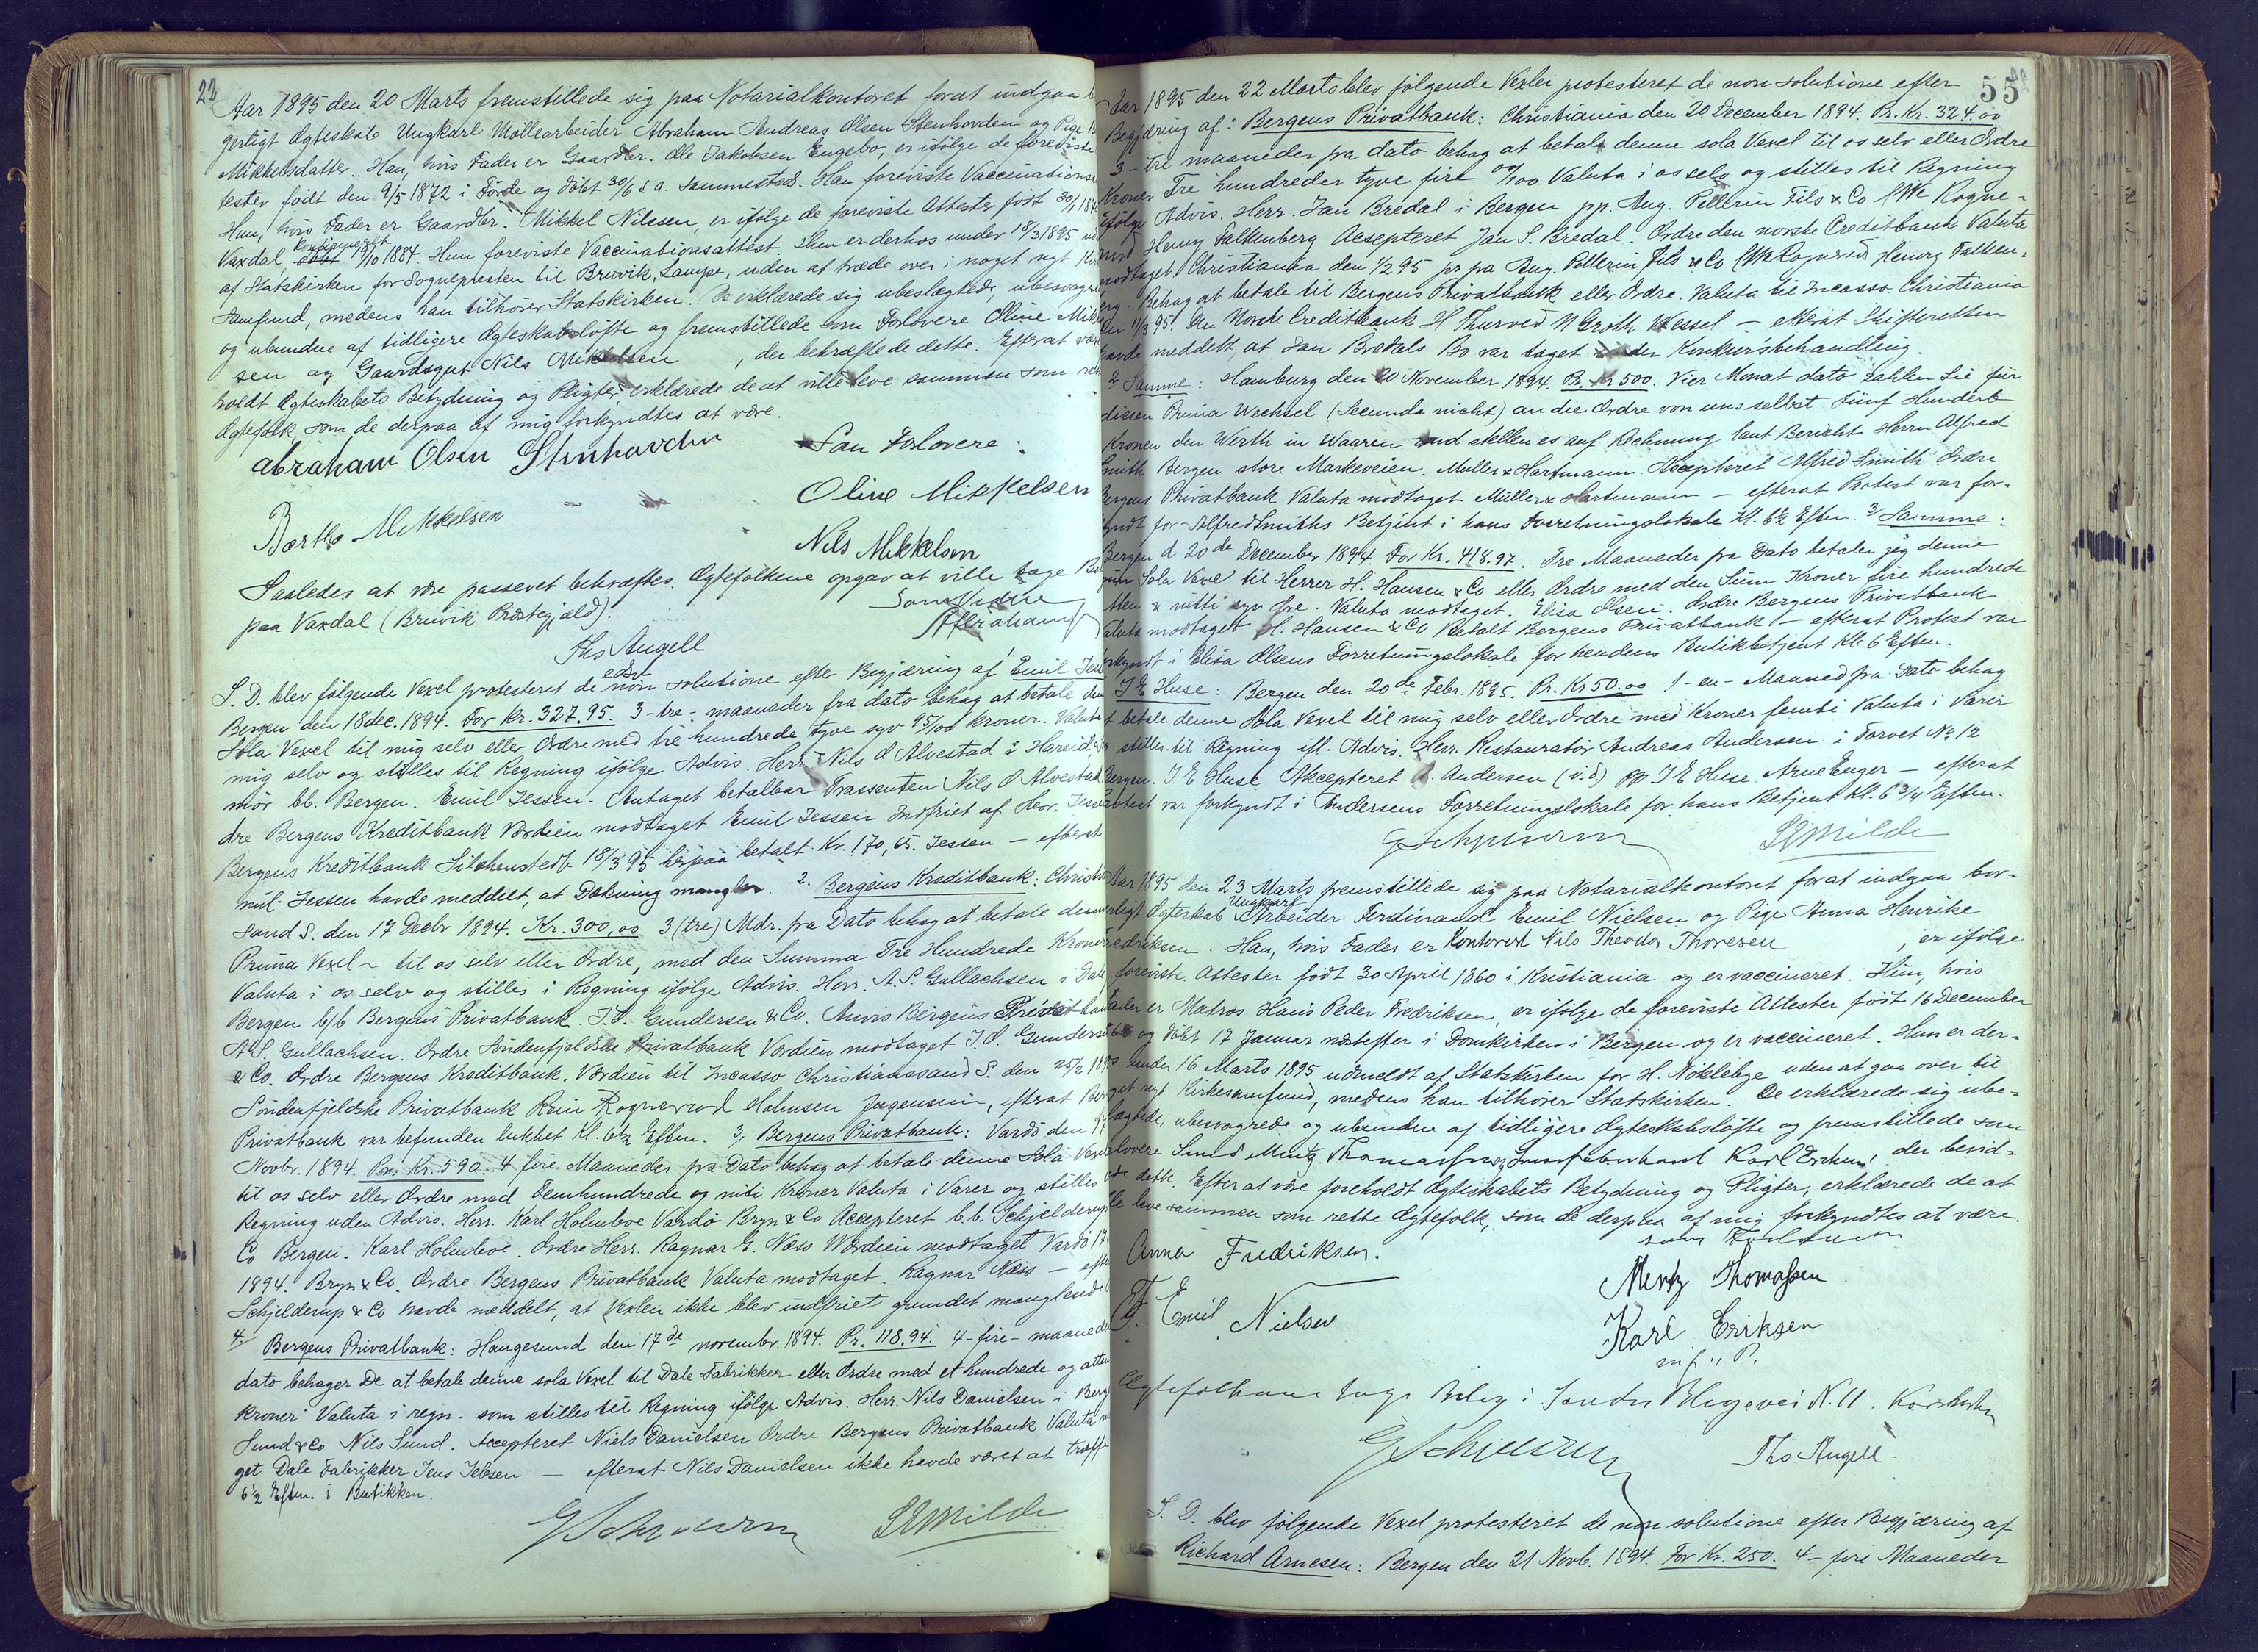 22
Aar 1895 den 20 Marts fremstillede sig paa Notarialkontoret forat indgaa b
gerligt Ægteskab Ungkarl Møllearbeider Abraham Andreas Olsen Stenhovden og Pige
Mikkelsdatter. Han, hvis Fader er Gaardbr. Ole Jakobsen Engebø, er ifølge de foreviste
tester født den 9/5 1872 i Førde og døbt 30/6 s. a. sammesteds. Han foreviste Vaccinations
Hun, hvis Fader er Gaardbr. Mikkel Nilssen, er ifølge de foreviste Attester født 30/1
Vaxdal konfirmeret 19/10 1884. Hun foreviste Vaccinationsattest. Hun er derhos under 18/3 1895 ud
af Statskirken for Sognepresten til Bruvik, Lampe, uden at træde over i noget nyt Kir
samfund, medens han tilhører Statskirken. De erklærede sig ubeslægtede, ubesvogre
og ubundne af tidligere Ægteskabsløfte og fremstillede som Forlovere Oline Mikkel
sen og Gaardsgut Nils Mikkelsen , der bekræftede dette. Efterat være
holdt Ægteskabets Betydning og Pligter, erklærede de at ville leve sammen som ret
Ægtefolk, som de derpaa af mig forkyndtes at være.
Abraham Olsen Stenhovden Som Forlovere:
Oline Mikkelsen
Bertha Mikkelsen
Nils Mikkelsen
Saaledes at være passeret bekræftes. Ægtefolkene opgav at ville tage Bo
paa Vaxdal (Bruvik Præstegjæld).
Som Vidne
Abraham
Ths Angell
S. D. blev følgende Vexel protesteret de non solutione efter Begjæring af 1 Emil Jess
Bergen den 18 dec. 1894. For Kr. 327.95 3-tre- maaneder fra dato behag at betale den
Sola Vexel til mig selv eller Ordre med tre hundrede tyve syv 95/100 kroner. Valuta
mig selv og stilles til Regning ifølge Advis. Herr Nils O Alvestad i Hareid
mør bb. Bergen. Emil Jessen. Antaget betalbar Trassenten Nils O Alvestad
dre Bergens Kreditbank Værdien modtaget Emil Jessen Indfriet af Herr. Jess
Bergens Kreditbank 18/3 95 herpaa betalt Kr. 170,65. Jessen — efterat
mil Jessen havde meddelt, at Dækning mangler. 2. Bergens Kreditbank: Christ
sand S. den 17 Decbr 1894. Kr. 300,00 3 (tre) Mdr. fra Dato behag at betale denne
Prima Vexel — til os selv eller Ordre, med den Summa Tre Hundrede Kroner
Valuta i os selv og stilles i Regning ifølge Advis. Herr. A. S. Gullachsen i Dale
Bergen b/b Bergens Privatbank. J. O. Gundersen & Co. Anvis Bergens Privatbank
A. S. Gullachsen. Ordre Søndenfjeldske Privatbank Værdien modtaget J. O. Gunders
& Co. Ordre Bergens Kreditbank. Værdien til Incasso Christianssand S. den 25/2 189
Søndenfjeldske Privatbank Rein Rognerud Holmsen Jørgensen, efterat Ber
Privatbank var befunden lukket Kl. 6½ Eften. 3, Bergens Privatbank: Vardø den
Novbr. 1894. Pr. Kr. 590. 4 fire Maaneder fra Dato behag at betale denne Sola Vexel
til os selv eller Ordre med Femhundrede og niti Kroner Valuta i Varer og stilles
Regning uden Advis. Herr. Karl Holmboe Vardø Bryn & Co Accepteret b.b. Schjelderup
Co Bergen. Karl Holmboe. Ordre Herr. Ragnar E. Næss Værdien modtaget Vardø 17
1894. Bryn & Co. Ordre Bergens Privatbank Valuta modtaget. Ragnar Næss — efte
Schjelderup & Co havde meddelt, at Vexlen ikke blev indfriet grundet manglende
4. Bergens Privatbank: Haugesund den 17de novembr. 1894. Pr. 118.94. 4-fire- maaneder
dato behager De at betale denne sola Vexel til Dale Fabrikker eller Ordre med et hundrede og atten
kroner Valuta i regn. som stilles til Regning ifølge Advis. Herr. Nils Danielsen i Berg
Sund & Co Nils Sund. Accepteret Niels Danielsen Ordre Bergens Privatbank Valuta m
get Dale Fabrikker Jens Jebsen — efterat Nils Danielsen ikke havde været at træffe
6½ Eften. i Butikken.
55
Aar 1895 den 22 Marts blev følgende Vexler protesteret de non solutione efter
Begjæring af: Bergens Privatbank: Christiania den 20 December 1894. Pr. Kr. 324.00
3-tre maaneder fra dato behag at betale denne sola Vexel til os selv eller Ordre
Kroner Tre hundreder tyve fire 00/100 Valuta i os selv og stilles til Regning
ifølge Advis. Herr. Jan Bredal i Bergen pp. Aug. Pellerin Fils & Co Rogne-
rud Henry Falkenberg Accepteret Jan S. Bredal. Ordre den norske Creditbank Valuta
modtaget Christiania den 1/2 95 pr pa Aug. Pellerin fils & Co Rognerud Henry Falken-
berg. Behag at betale til Bergens Privatbank eller Ordre. Valuta til Incasso. Christiania
den 11/3 95. Den Norske Creditbank H Thurved N Groth Wessel — efterat Skifteretten
havde meddelt, at Jan Bredals Bo var taget under Konkursbehandling.
2, Samme: Hamburg den 20 November 1894. Pr. Kr 500. Vier Monat dato zahlen Sie für
diesen Prima Wechsel (Secunda nicht) an die Ordre von uns selbst fünf Hundert
Kronen den Werth in Waaren und stellen es auf Rechnung laut Bericht Herrn Alfred
Smith Bergen store Markeveien. Müller & Hartmann. Accepteret Alfred Smith Ordre
Bergens Privatbank Valuta modtaget Müller & Hartmann — efterat Protest var for-
kyndt for Alfred Smiths Betjent i hans Forretningslokale Kl. 6½ Eften. 3, Samme:
Bergen d 20de December 1894. For Kr. 418.97. Tre Maaneder fra Dato betaler jeg denne
min Sola Vexel til Herrer H. Hansen & Co eller Ordre med den Sum Kroner fire hundrede
atten & nitti syv Øre. Valuta modtaget. Elisa Olsen. Ordre Bergens Privatbank
Valuta modtaget H. Hansen & Co Betalt Bergens Privatbank — efterat Protest var
forkyndt i Elisa Olsens Forretningslokale for hendes Butikbetjent Kl. 6 Eften.
J E Huse: Bergen den 20de Febr. 1895. Pr. Kr 50.00 1-en- Maaned fra Dato behag
at betale denne Sola Vexel til mig selv eller Ordre med Kroner femti Valuta i Varer
og stilles til Regning ifl. Advis. Herr. Restauratør Andreas Andersen i Torvet No 12
Bergen. J E Huse Akcepteret A. Andersen (i.d) pp J E Huse Arne Enger — efterat
Protest var forkyndt i Andersens Forretningslokale for hans Betjent Kl. 6 3/4 Eften.
Aar 1895 den 23 Marts fremstillede sig paa Notarialkontoret forat indgaa bor-
gerligt Ægteskab Ungkarl Arbeider Ferdinand Emil Nielsen og Pige Anna Henrike
Fredriksen. Han, hvis Fader er Kontorist Nils Theodor Thoresen , er ifølge
foreviste Attester født 30 April 1860 i Kristiania og er vaccineret. Hun, hvis
Fader er Matros Hans Peder Fredriksen, er ifølge de foreviste Attester født 16 December
og døbt 17 Januar næstefter i Domkirken i Bergen og er vaccineret. Hun er der-
hos under 16 Marts 1895 udmeldt af Statskirken for H. Nøkleby uden at gaa over til
noget nyt Kirkesamfund, medens han tilhører Statskirken. De erklærede sig ube-
slægtede, ubesvogrede og ubundne af tidligere Ægteskabsløfte og fremstillede som
Forlovere Smed Mentz Thomassen og Karl Eriksen, der bevid-
nede dette. Efter at være foreholdt Ægteskabets Betydning og Pligter, erklærede de at
ville leve sammen som rette Ægtefolk, som de derpaa af mig forkyndtes at være.
som Forlovere
Anna Fredriksen.
Mentz Thomassen
F. Emil Nielsen
Karl Eriksen
m. f. P.
Ægtefolkene tage Bolig i Søndre Blegevei N. 11.
Ths Angell.
S. D. blev følgende Vexel protesteret de non solutione efter Begjæring af
Richard Arnesen: Bergen den 21 Novb. 1894. For Kr. 250. 4- fire Maaneder